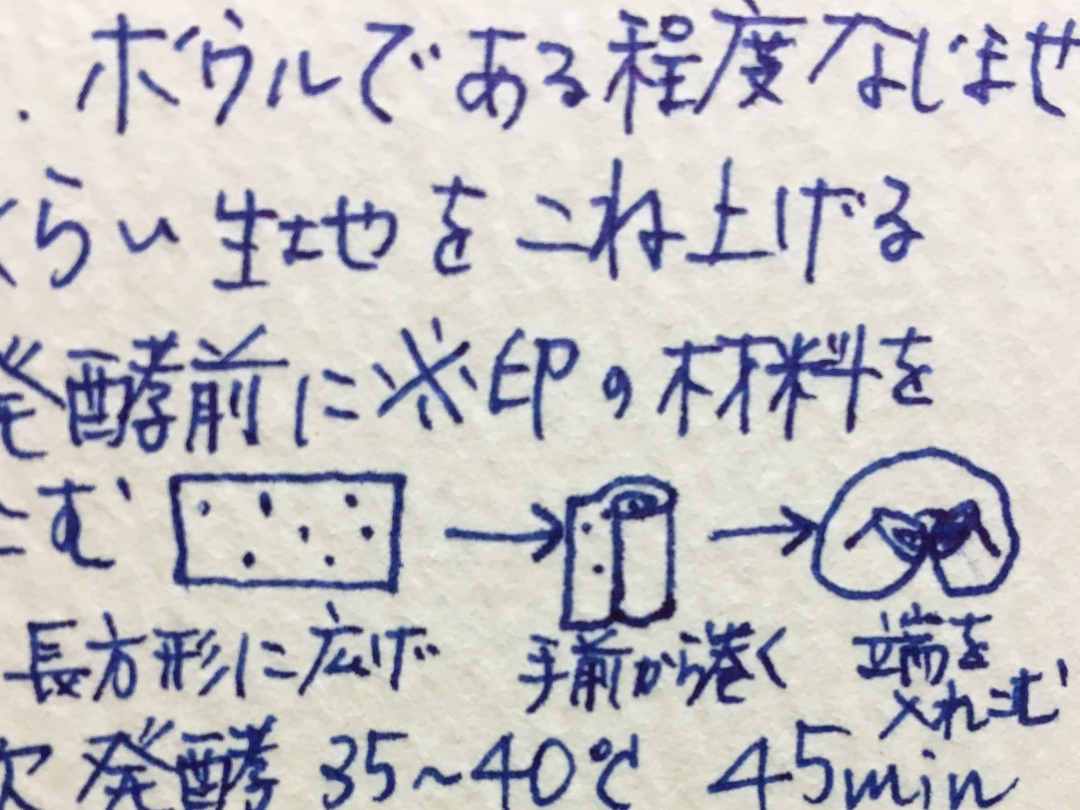 . ボウルである程度なじませ
くらい生地をこね上げる
発酵前に※印の材料を
こむ
長方形に広げ 手前から巻く 端を
入れこむ
次発酵 35~40℃ 45min